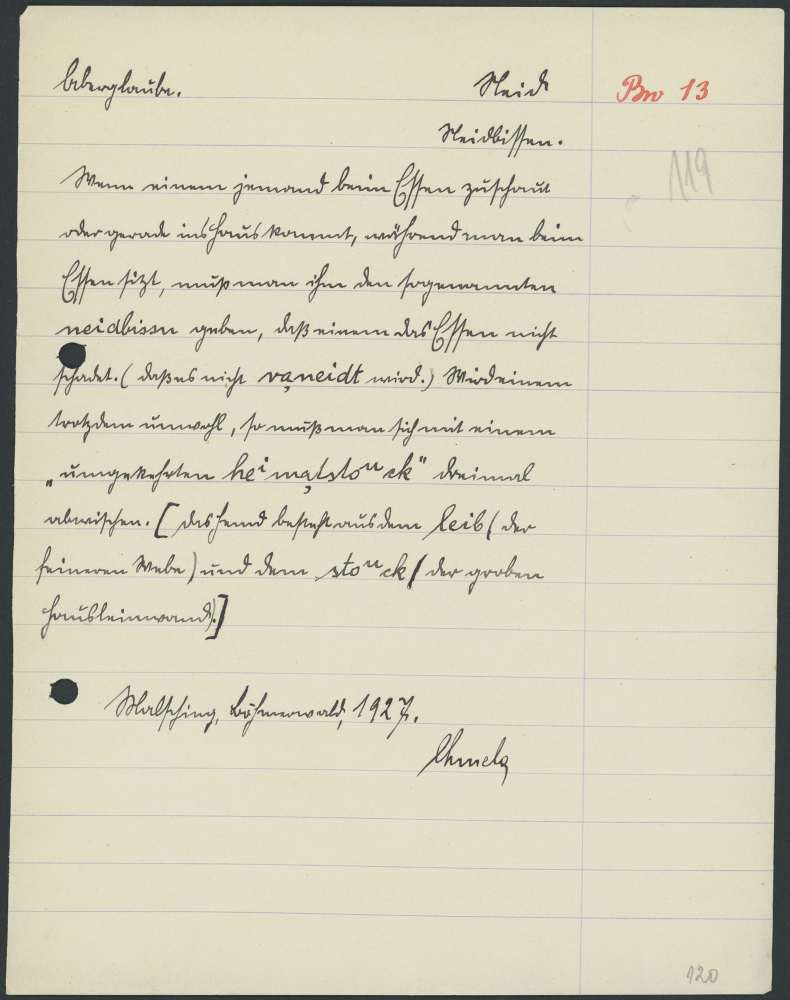 Aberglaube. Neid Bw 13
Neidbissen. 119
Wenn einem jemand beim Essen zuschaut
oder gerade ins Haus kommt, während man beim
Essen sitzt, muß man ihm den sogenannten
neidbissn geben, daß einem das Essen nicht
schadet. (daß es nicht vąneidt wird.) Wird einem
trotzdem unwohl, so muß man sich mit einem
„umgekehrten heⁱmątstoᵘck" dreimal
abwischen. [das Hemd besteht aus dem leib (der
feineren Webe) und dem stoᵘck (der groben
Hausleinwand).]
Malsching, Böhmerwald, 1927.
Chmela
120